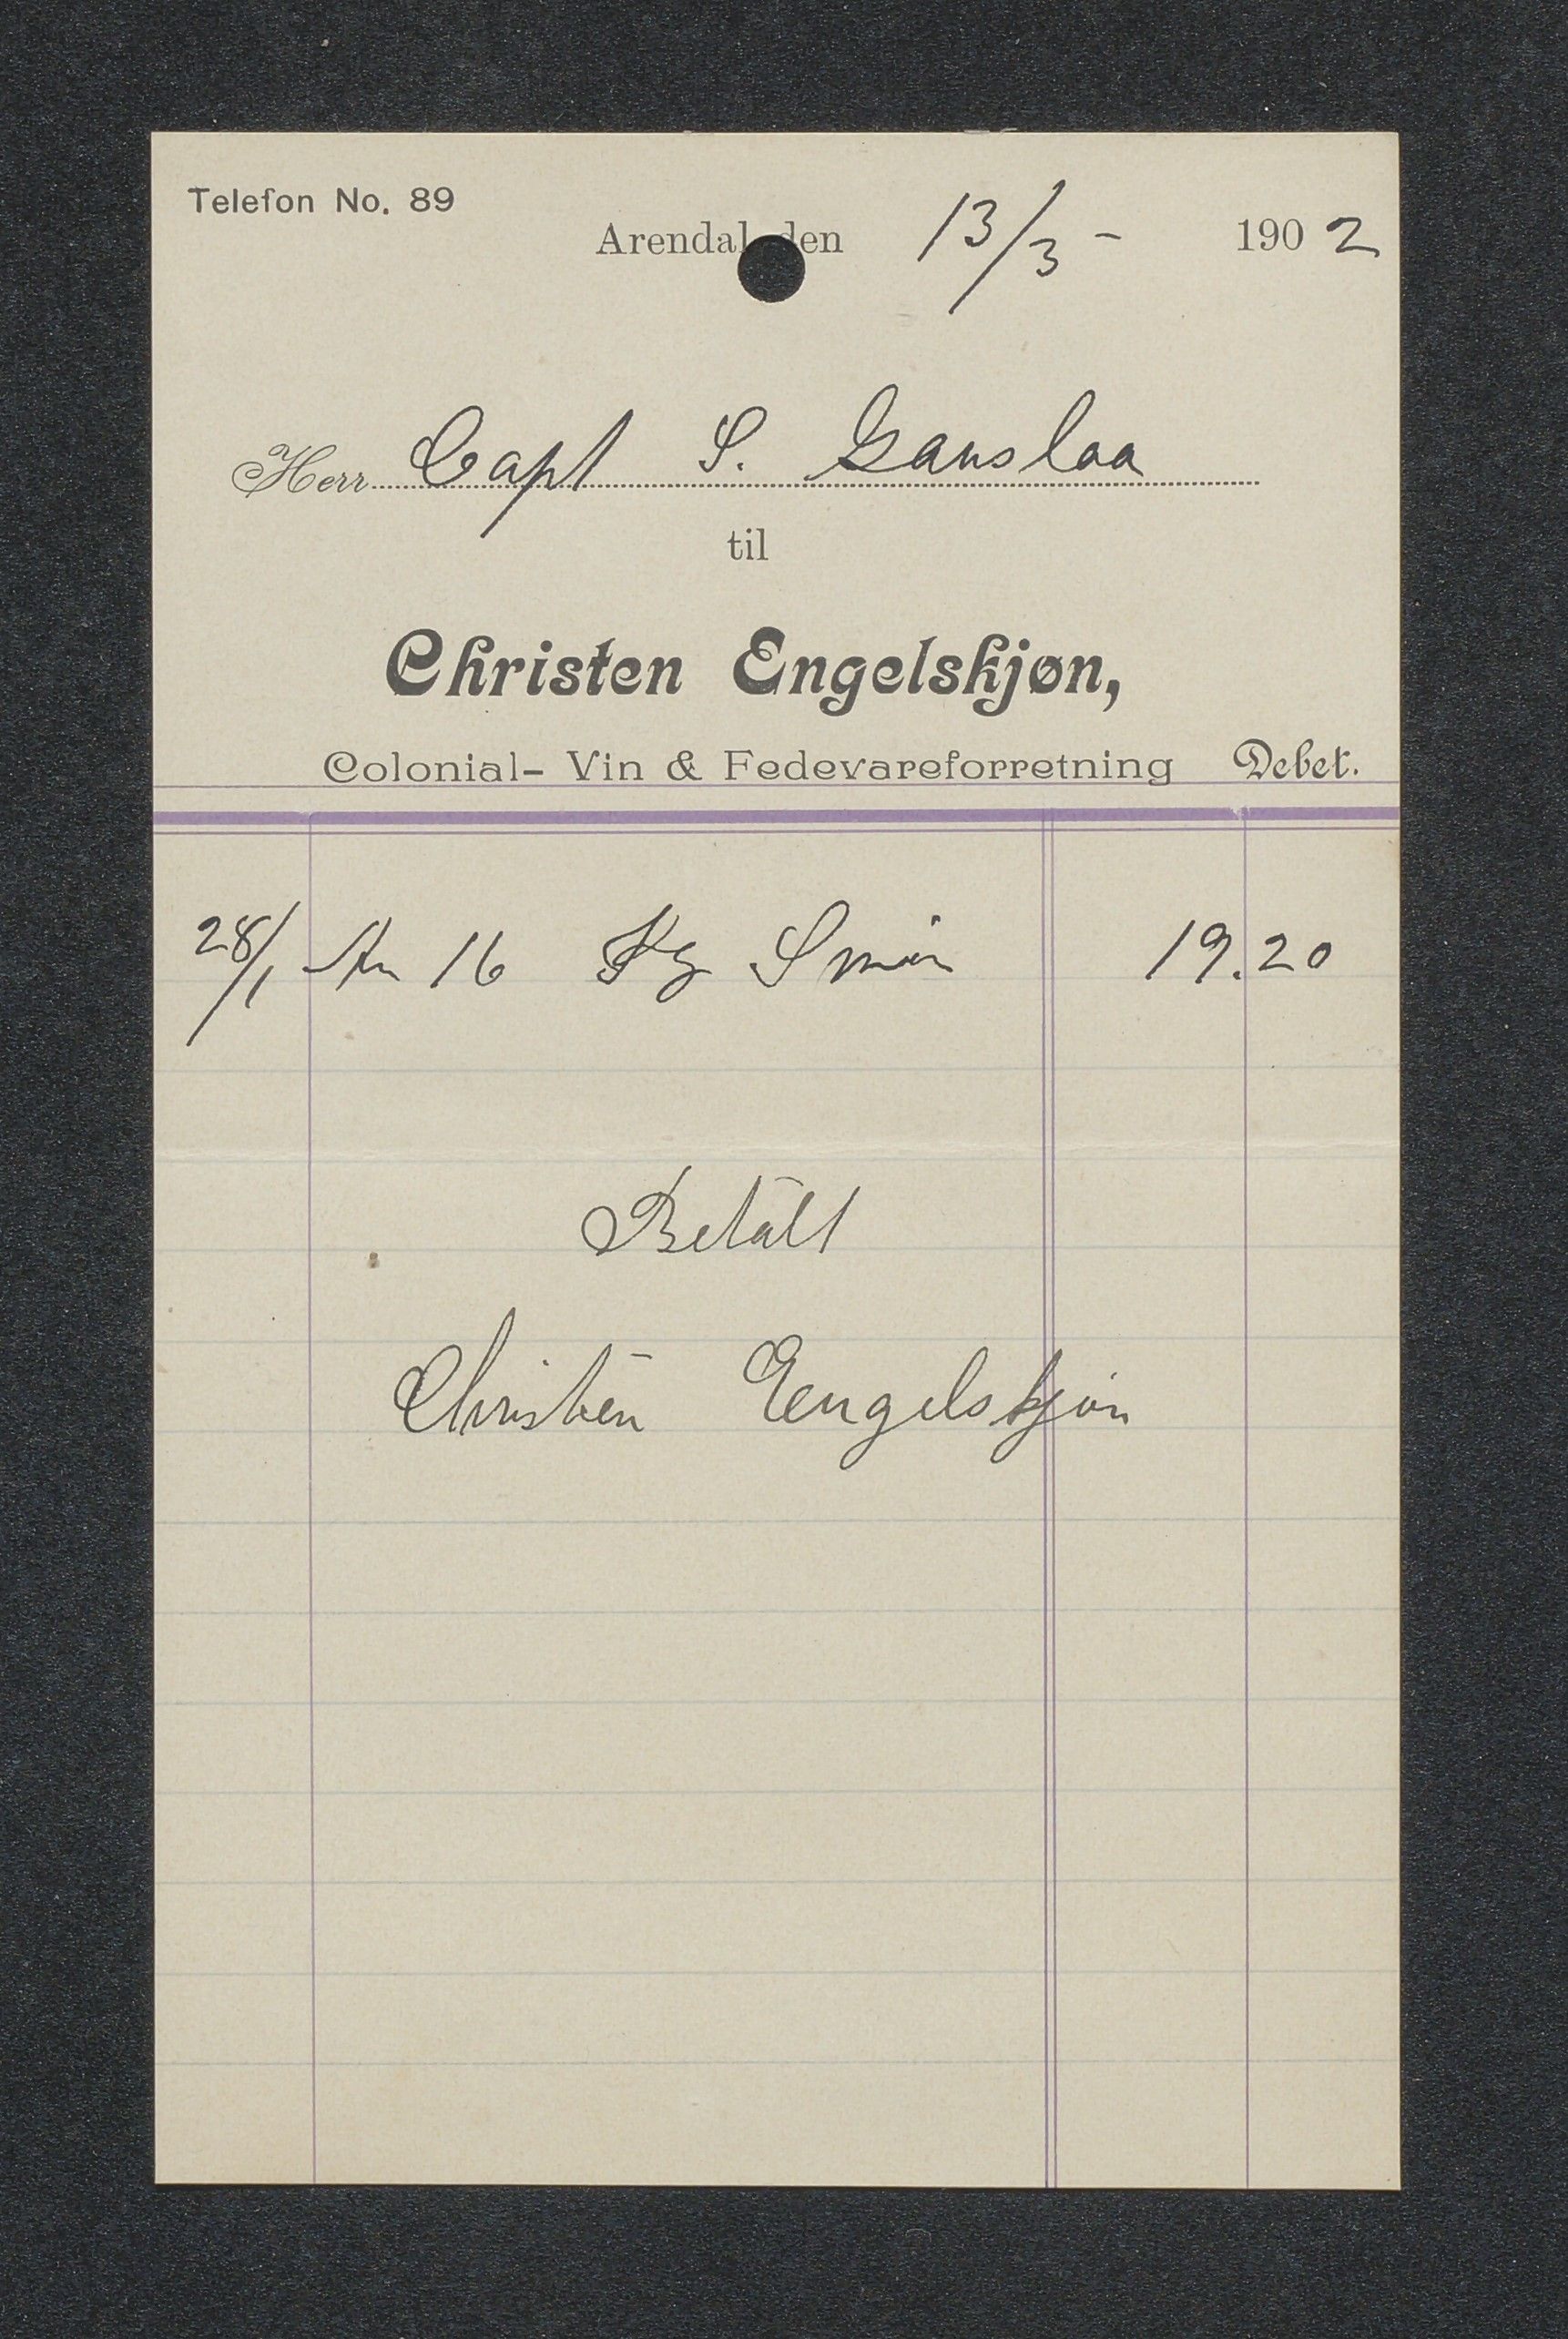 Telefon No. 89
Arendal den 13/3 - 1902
Herr Capt S. Gauslaa
til
Christen Engelskjøn,
Colonial- Vin & Fedevareforretning Debet.
28/1 An 16 Kg Smør 19.20
Betalt
Christen Engelskjøn